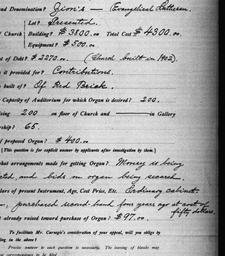 and Denomination? Zion's — Evangelical Lutheran.
Lot? Presented.
Church { Building? $3800.00 Total Cost $4300.00
Equipment? $500.00
of Debt? $2270.00 (Church built in 1902).
it provided for? Contributions.
built of? Of Red Brick.
Capacity of Auditorium for which Organ is desired? 200.
200 on floor of Church and — in Gallery
ship? 65.
of proposed Organ? $400.00
[This question is for explicit answer by applicants after investigation by them.]
what arrangements made for getting Organ? Money is being
and bids on organ being
lars of present Instrument, Age, Cost Price, Etc. Ordinary cabinet
purchased second hand four years ago at cost of
fifty dollars.
already raised toward purchase of Organ? $97.00
To facilitate Mr. Carnegie's consideration of your appeal, will you oblige by
ling in the above?
Precise answer to each question is necessary. The leaving of blanks may